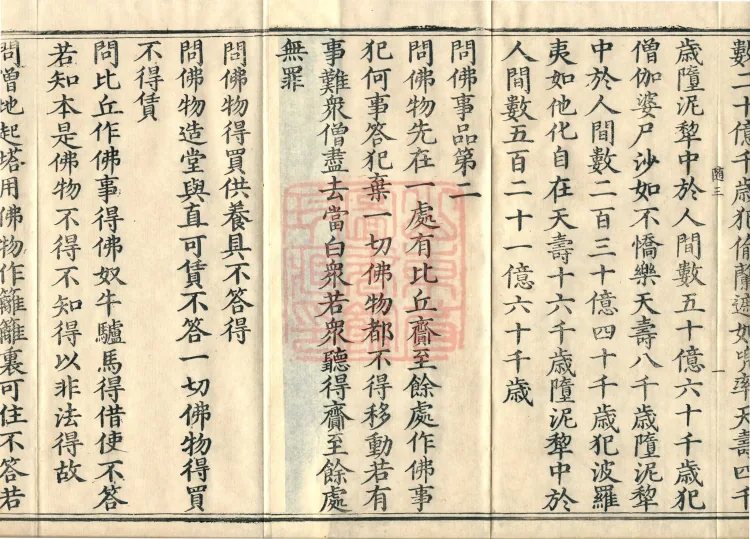 數二十億千歲犯偷蘭遮如兜率天壽四千
隨三
一
歲墮泥犂中於人間數五十億六十千歲犯
僧伽婆尸沙如不憍樂天壽八千歲墮泥犂
中於人間數二百三十億四十千歲犯波羅
夷如他化自在天壽十六千歲墮泥犂中於
人間數五百二十一億六十千歲
問佛事品第二
問佛物先在一處有比丘齎至餘處作佛事
犯何事答犯棄一切佛物都不得移動若有
事難衆僧盡去當白衆若衆聽得齎至餘處
無罪
問佛物得買供養具不答得
問佛物造堂與直可賃不答一切佛物得買
不得賃
問比丘作佛事得佛奴牛驢馬得借使不答
若知本是佛物不得不知得以非法得故
問僧地起塔用佛物作籬籬裏可住不答若